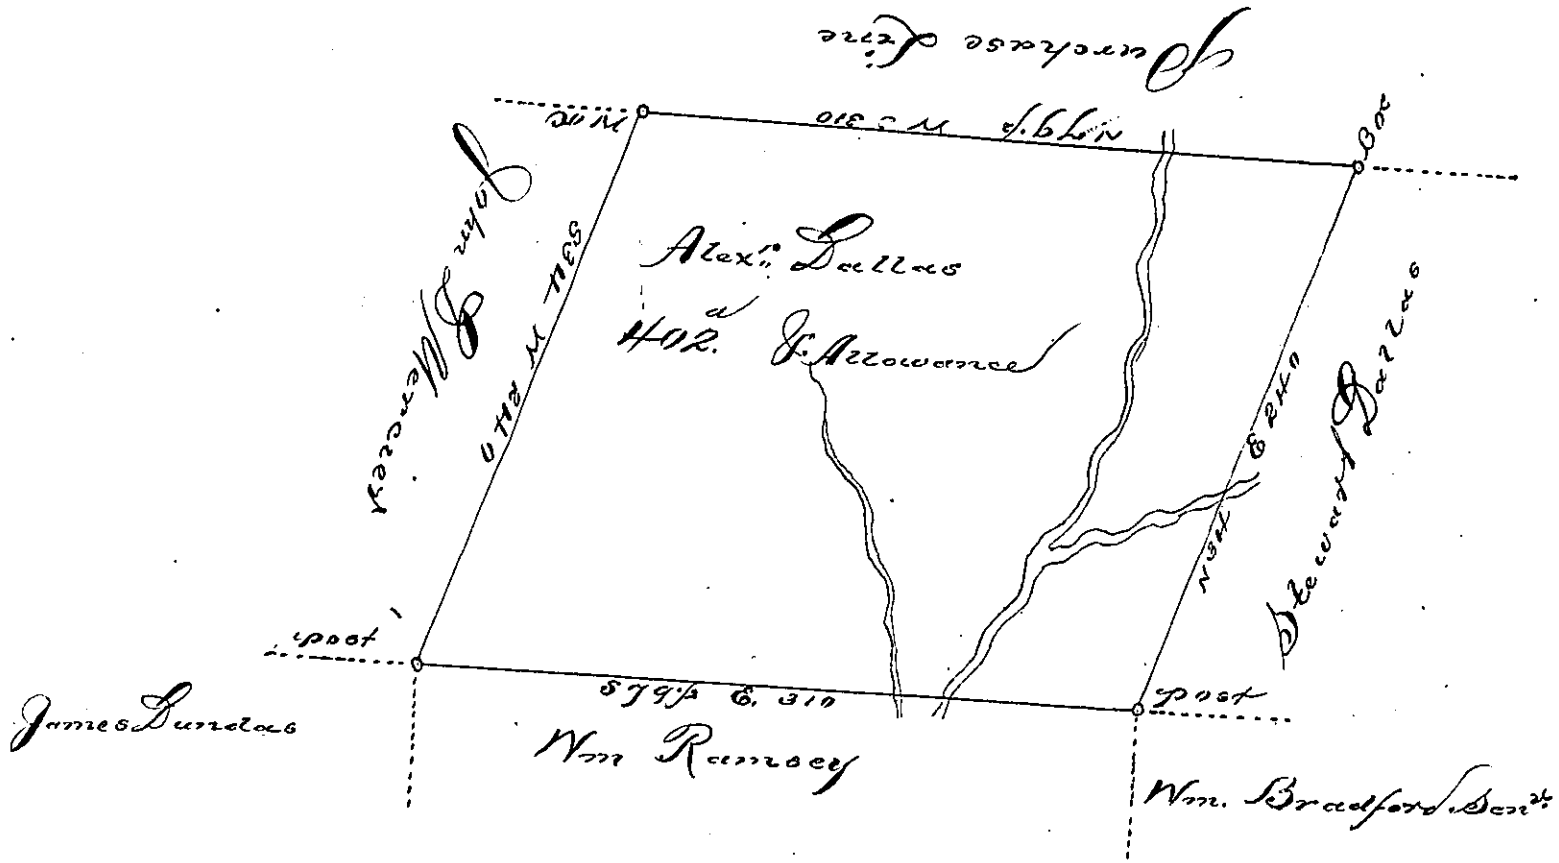 Purchase Line
N79½ W 310
Box
John D Mercier
S34 W 240
Alexr. Dallas
402.a & Allowance
N34 E 240
Steward Dallas
post
S79½ E. 310
post
James Dundas
Wm Ramsey
Wm. Bradford